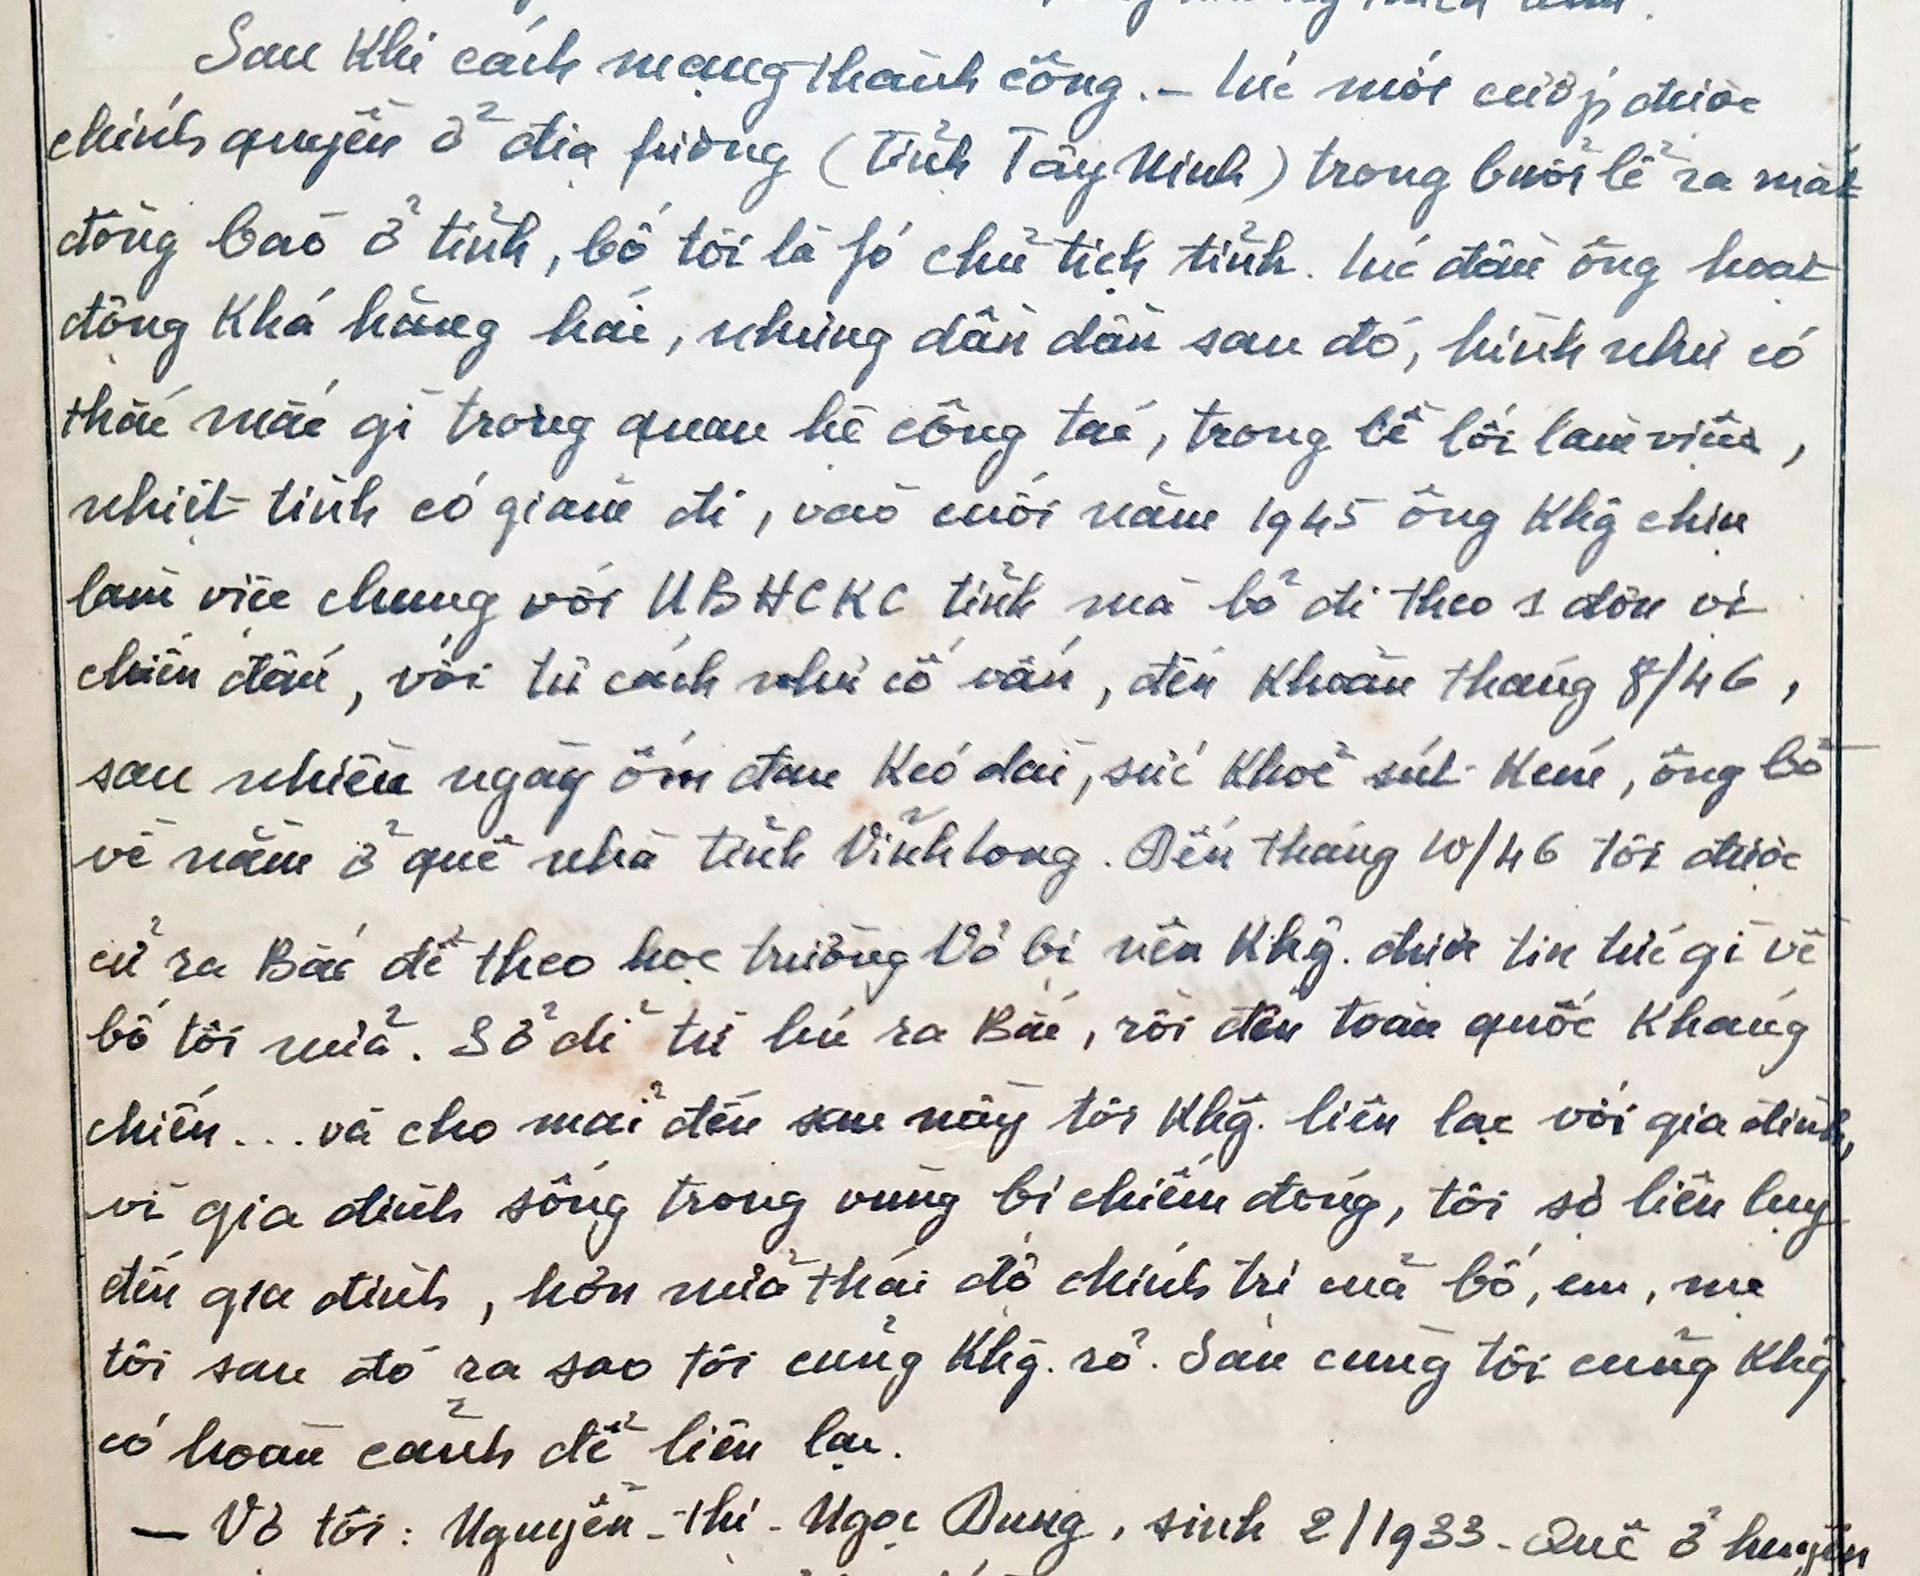 Sau khi cách mạng thành công. – lúc mới cướp được
chính quyền ở địa fương (tỉnh Tây Ninh) trong buổi lễ ra mắt
đồng bào ở tỉnh, bố tôi là fó chủ tịch tỉnh. lúc đầu ông hoạt
động khá hăng hái, nhưng dần dần sau đó, hình như có
thắc mắc gì trong quan hệ công tác, trong lề lối làm việc,
nhiệt tình có giảm đi, vào cuối năm 1945 ông khg chịu
làm việc chung với UBHCKC tỉnh mà bỏ đi theo 1 đơn vị
chiến đấu, với tư cách như cố vấn, đến khoản tháng 8/46,
sau nhiều ngày ốm đau kéo dài, sức khoẻ sút kém, ông bỏ
về nằm ở quê nhà tỉnh Vĩnh long. Đến tháng 10/46 tôi được
cử ra Bắc để theo học trường Võ bị nên khg. được tin tức gì về
bố tôi nữa. Sở dĩ từ lúc ra Bắc, rồi đến toàn quốc kháng
chiến... và cho mãi đến sau này tôi khg. liên lạc với gia đình,
vì gia đình sống trong vùng bị chiếm đóng, tôi sợ liên lụy
đến gia đình, hơn nữa thái độ chính trị của bố, em, mẹ
tôi sau đó ra sao tôi cũng khg. rõ. Sau cùng tôi cũng khg
có hoàn cảnh để liên lạc.
— Vợ tôi: Nguyễn-thị-Ngọc Dung, sinh 2/1933 - Quê ở huyện